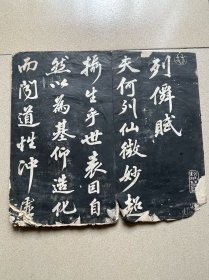 列僊賦
夫何列仙微妙超
攝生乎世表因自
然以為基仰造化
而聞道性沖虛